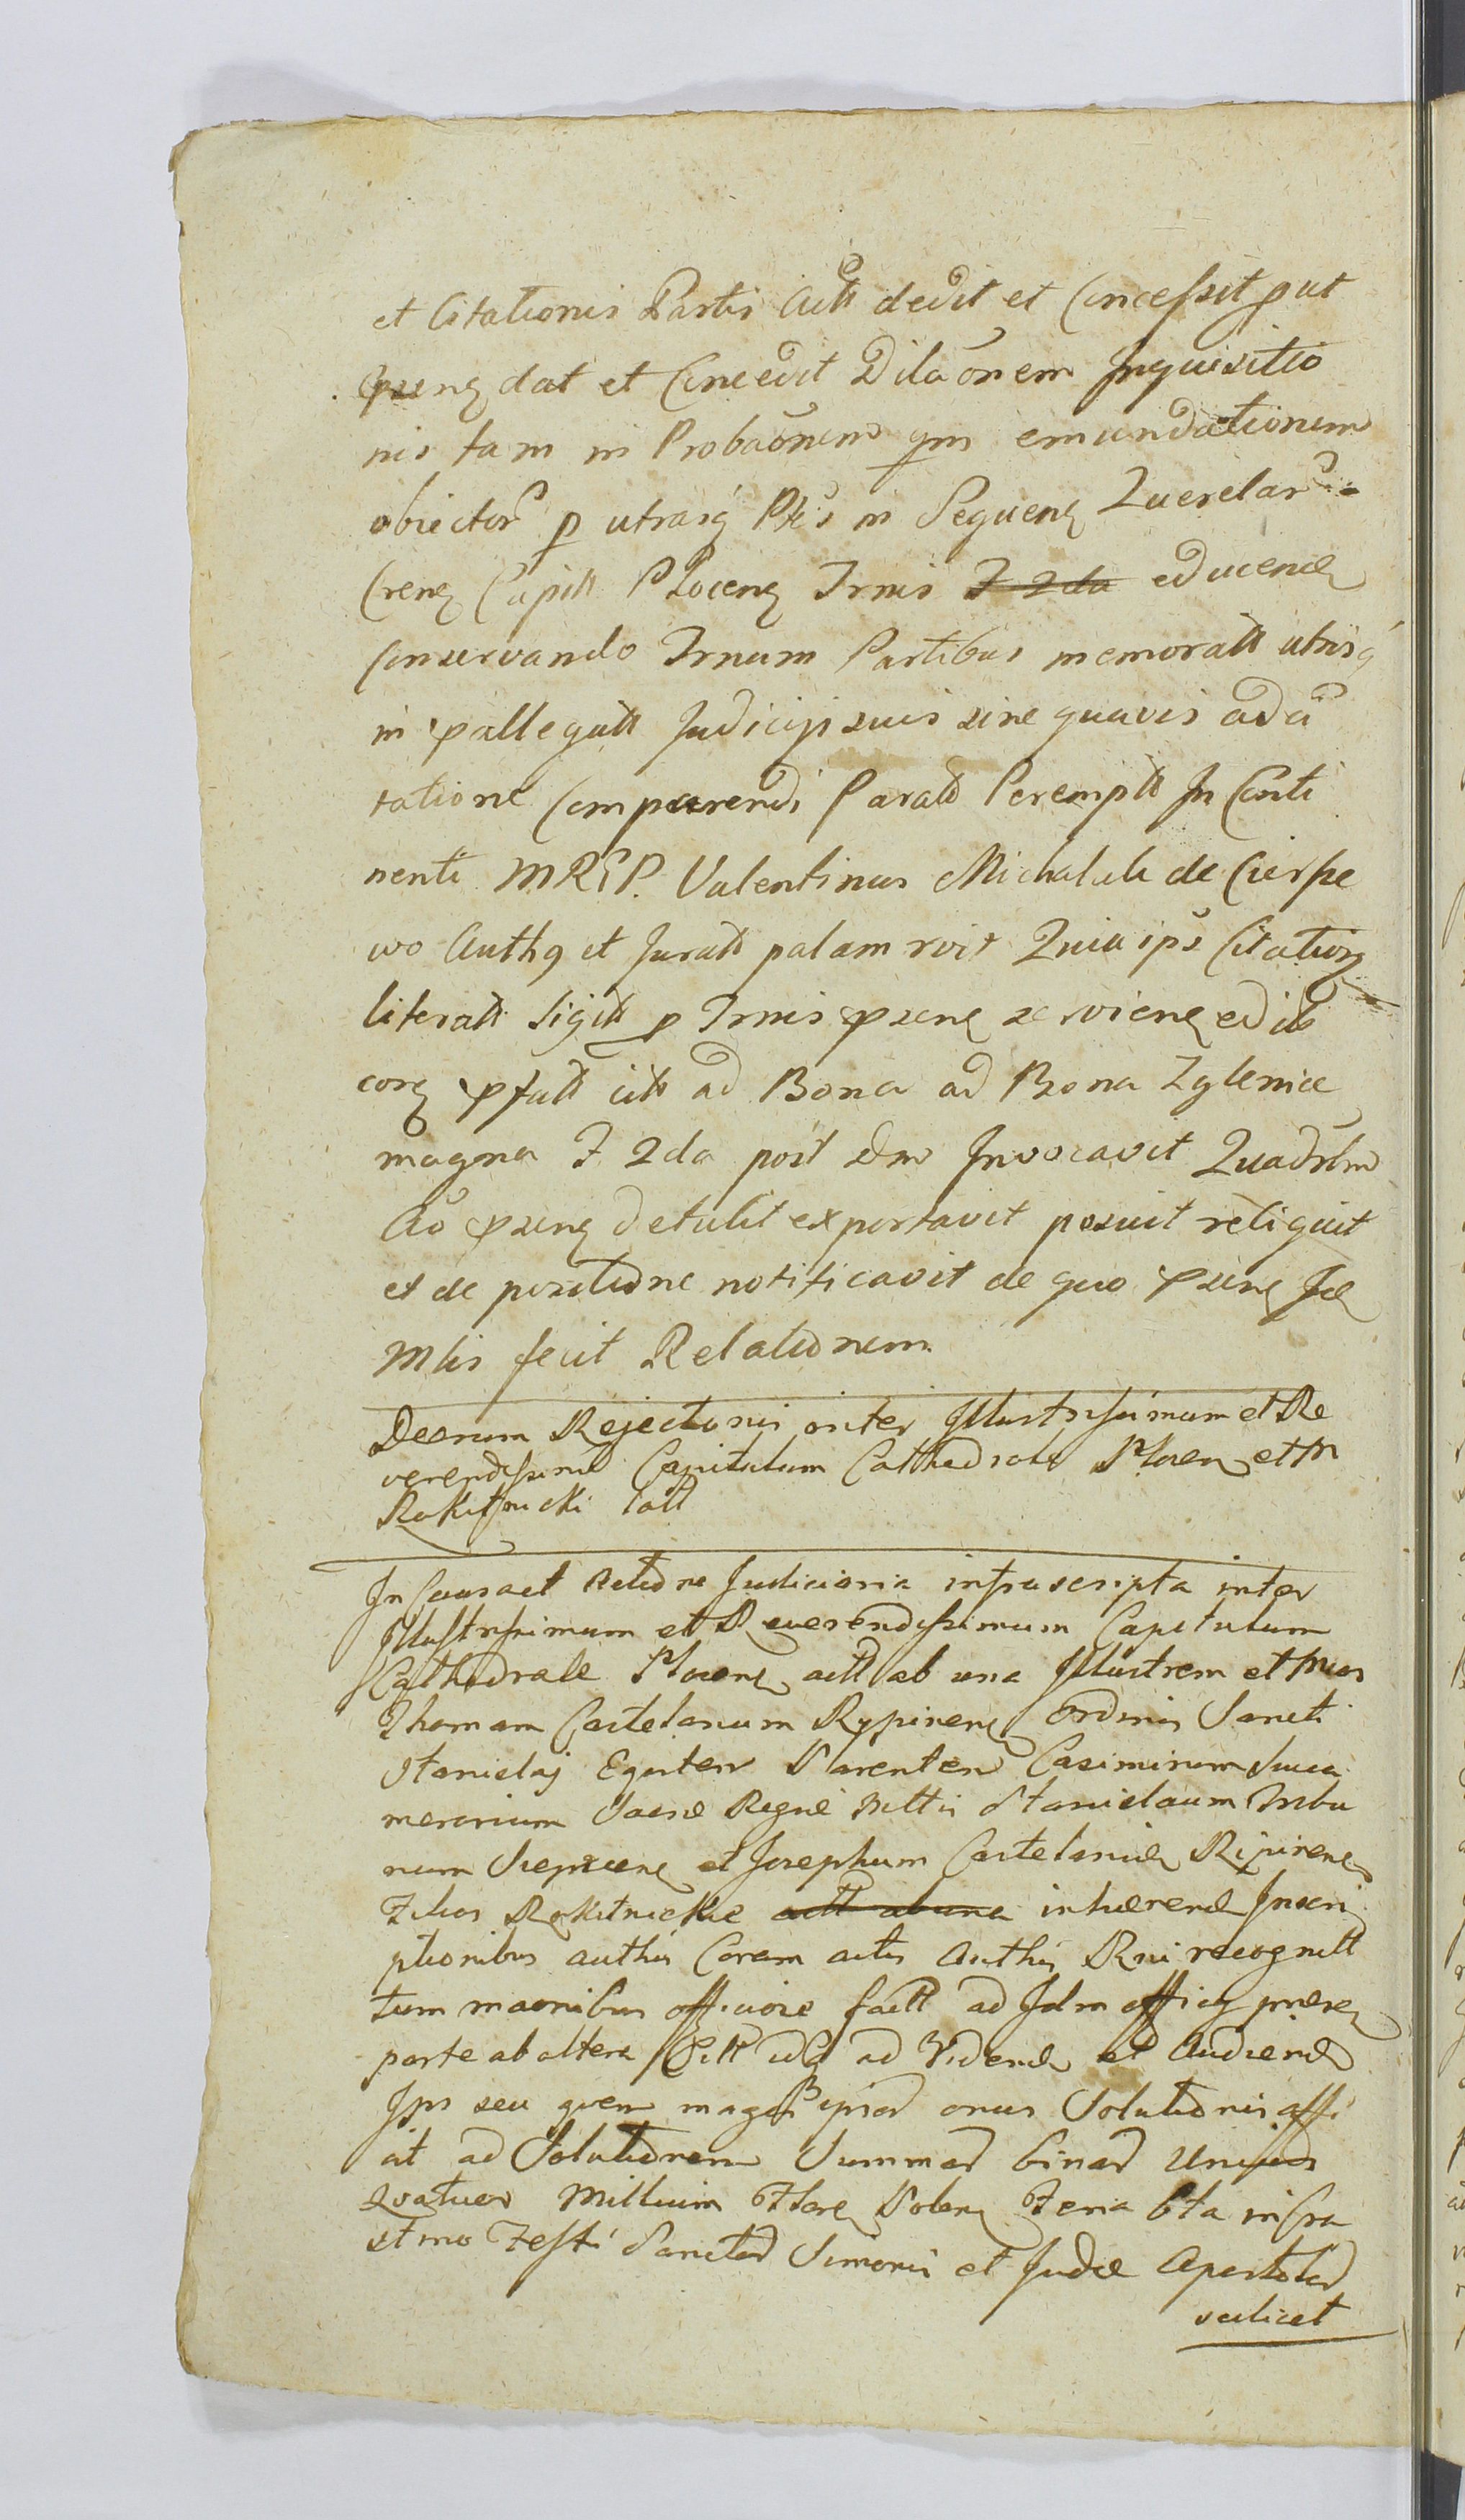 et Citationis Partis Actt dedit et Concessit put
psenꝫ dat et Concedit Dilaonem Inquisitio
nis tam in Probaonem qm emundationem
obiector p utrasq Ptes in Sequenꝫ Querelar
Crenꝫ Capitt Plocenꝫ Trnis F 2da educend
Conservando Trnum Partibus memoratt utrisq
in pallegatt Judicijs suis sine quavis adci
tatione Comparendi Paratt Peremptt In Conti
nenti MRSP. Valentinus Michalski de Cierpe
wo Auth9 et Juratt palam rvit Quia ips Citationꝫ
literatt Sigitt p Trnis psenꝫ servienꝫ edit
eorꝫ pfatt citt ad Bona ad Bona Zglenice
magna F 2da post Dm Invocavit Quadrlm
Ao psenꝫ detulit exportavit posuit reliquit
et de positione notificavit de quo psenꝫ Jd
Mlis fecit Relationem.
Decrum Rejectionis inter Illustrissimum et Re
verendissimu Capitulum Cathedrale Plocen et M
Rokitnicki latt
In Causa et Actione Judiciaria infrascripta inter
Illustrissimum et Reverendissimum Capitulum
Cathedrale Plocenꝫ actt ab una Illustrem et Mcos
Thomam Castelanum Rypinenꝫ Ordinis Sancti
Stanislaj Equitem Parentem Casimirum Succa
merarium Sacræ Regiæ Mttis Stanislaum Tribu
num Sieprcenꝫ et Josephum Castelanid Ripinenꝫ
Filios Rokitnickie actt ab una inhærend Inscri
ptionibus authis Coram actis Authis Rni recognitt
tum maonibus officiose factt ad Jdm officij prære
parte ab altera Citt idq ad Vidend et Audiend
Ips seu quem magis ipsor onus Solutionis affi
cit ad Solutionem Summar binar Unius
Quatuor Millium Floren Polon Feria 6ta infra
et mo Festi Sanctor Simonis et Judæ Apostolor
scilicet